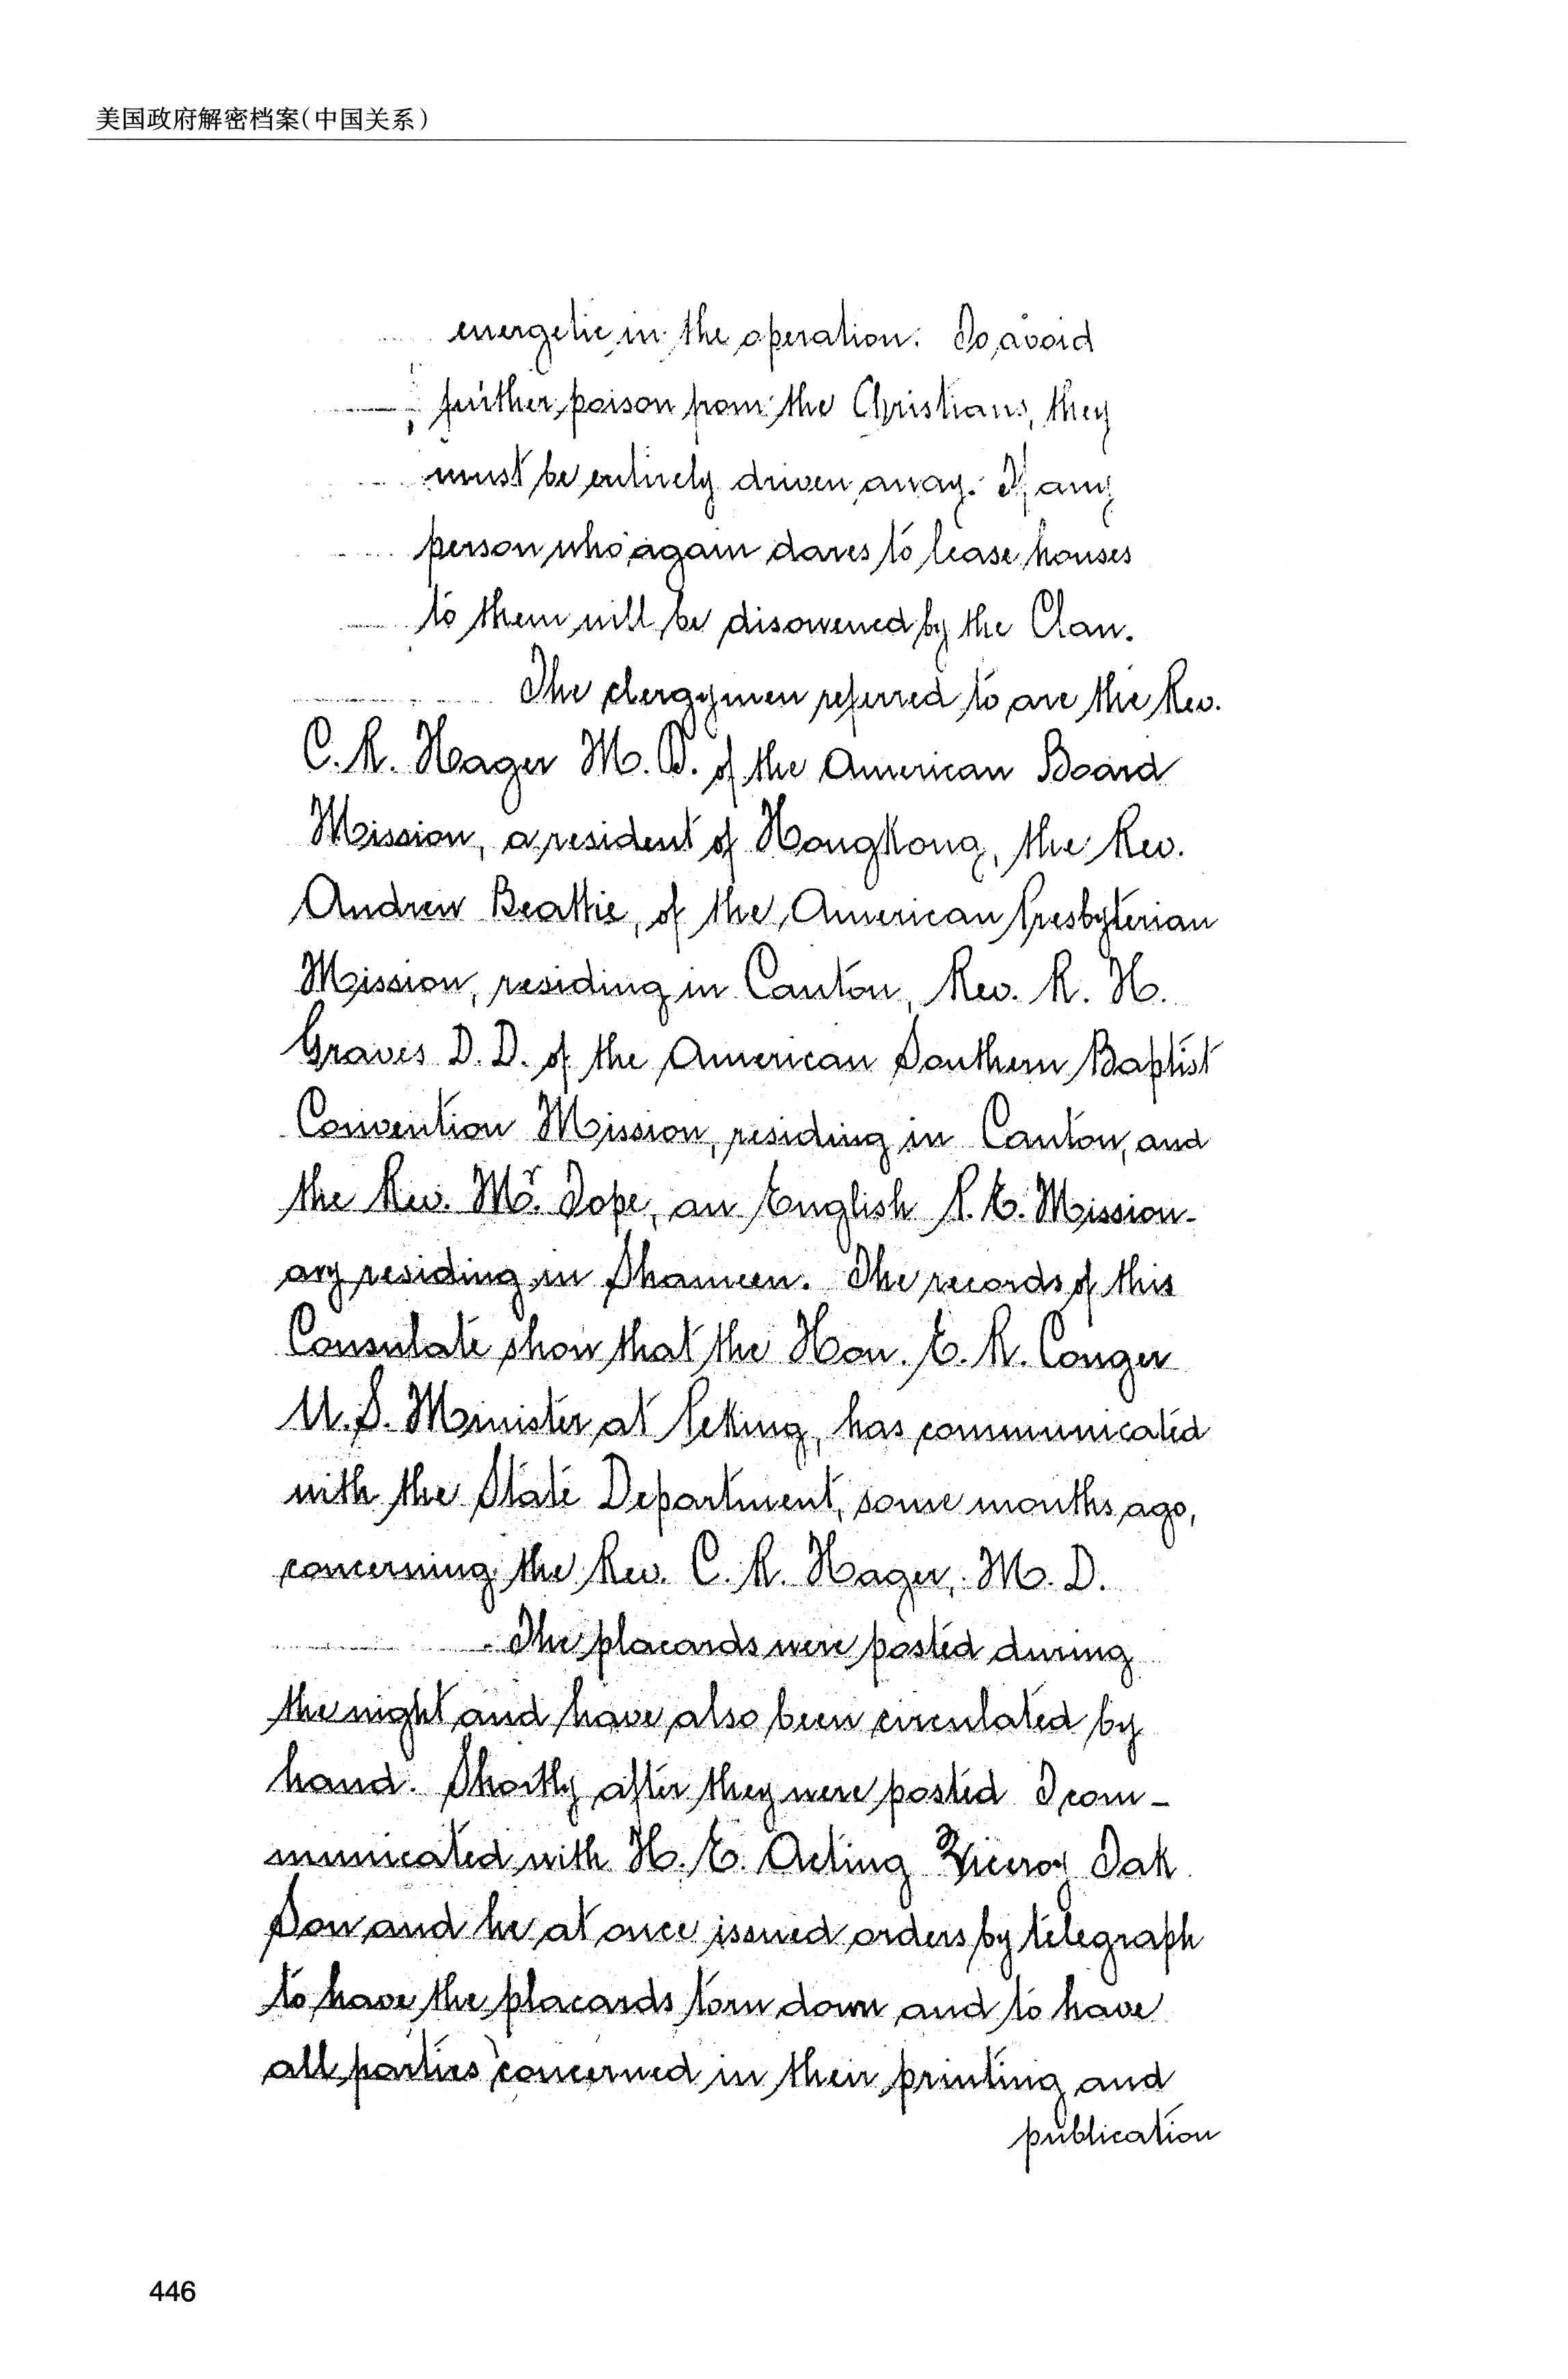 美国政府解密档案(中国关系)
energetic in the operation. To avoid
further poison from the Christians, they
must be entirely driven away. If any
person who again dares to lease houses
to them will be disowened by the Clan.
The clergymen referred to are the Rev.
C. R. Hager M. D. of the American Board
Mission, a resident of Hongkong, the Rev.
Andrew Beattie, of the American Presbyterian
Mission, residing in Canton, Rev. R. H.
Graves D. D. of the American Southern Baptist
Convention Mission, residing in Canton, and
the Rev. Mr. Tope, an English P. E. Mission-
ary residing in Shameen. The records of this
Consulate show that the Hon. E. H. Conger
U. S. Minister at Peking, has communicated
with the State Department, some months ago,
concerning the Rev. C. R. Hager, M. D.
The placards were posted during
the night and have also been circulated by
hand. Shortly after they were posted I com-
municated with H. E. Acting Viceroy Tak
Sou and he at once issued orders by telegraph
to have the placards torn down and to have
all parties concerned in their printing and
publication
446